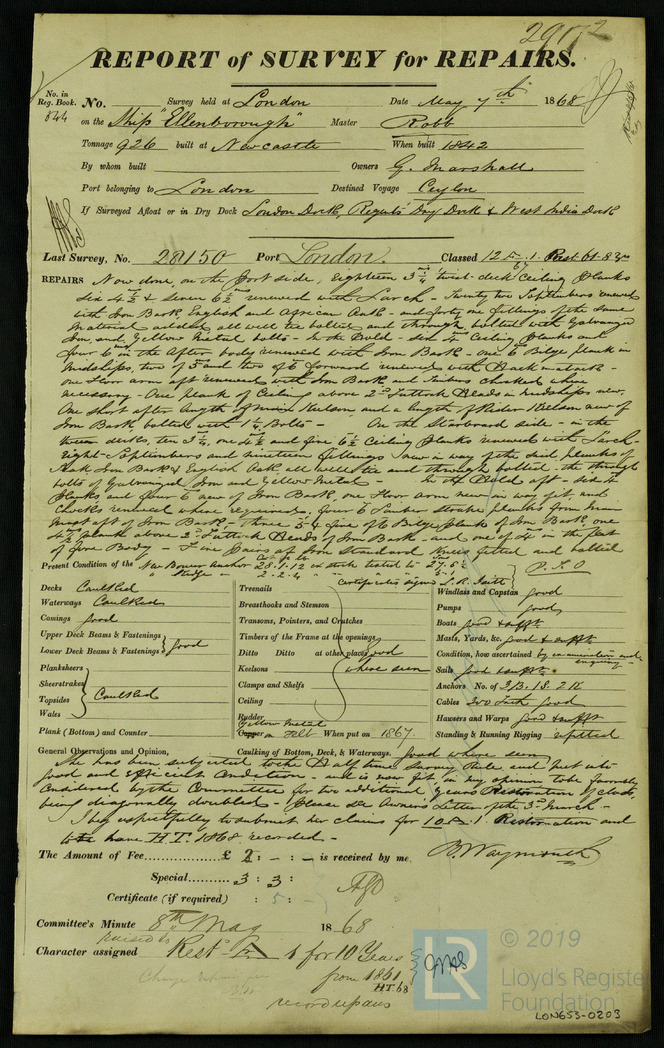 29172
REPORT of SURVEY for REPAIRS.
No. in Reg. Book. 844
No. Survey held at London Date May 7th 1868
on the Ship "Ellenborough" Master Robb
Tonnage 926 built at Newcastle When built 1842
By whom built Owners G. Marshall
Port belonging to London Destined Voyage Ceylon
If Surveyed Afloat or in Dry Dock London Dock, Regents Dry Dock & West India Dock
Last Survey, No. 28150 Port London. Classed 12
REPAIRS Now done, on the Port side, Eighteen 3 3/4 twixt-deck Ceiling planks
Six 4 1/2 & Seven 6 1/2 renewed with Larch - Twenty two renewed
with Iron Bark, English and African Oak - and forty one fillings of the same
Material added all well tee bolted and through bolted with Galvanized
Iron and Yellow Metal bolts - In the Hold - six 4 Ceiling Planks and
four 6 in the After body renewed with Iron Bark - one 6 Bilge plank in
Midships, two of 5 and two of 6 forward renewed with
one Floor arm aft renewed with Iron Bark and Timbers chocked where
necessary. One plank of Ceiling above 2nd Futtock Heads in Midships new.
One short after length of Main Kelson, and a length of Rider Kelson new of
Iron Bark, bolted with 1 1/4 Bolts - On the Starboard side - in the
decks, ten 3 3/4, one 4 1/2 and five 6 1/2 Ceiling Planks renewed with Larch -
Eight and nineteen fillings new in way of the said planks of
Iron Bark & English Oak, all well tee and through bolted - the through
bolts of Galvanized Iron and Yellow Metal - In the Hold aft - six 4
Planks and four 6 new of Iron Bark, one Floor arm new in way of it, and
Chocks renewed where required, four 6 Limber Strake planks from Main
Mast aft of Iron Bark - Three 5 & five of 6 Bilge planks of Iron Bark, one
4 1/2 plank above 2nd Futtock Heads of Iron Bark - and one of 4 in the flat
of Fore Body - Five Pairs of Iron Standard Knees fitted and bolted
Present Condition of the New Bower Anchor 28.1.12 ex stock tested to 27.
2.2.4
Certificates signed L.R. P.T.O
Decks Caulked
Waterways Caulked
Comings good
Upper Deck Beams & Fastenings
Lower Deck Beams & Fastenings good
Planksheers
Sheerstrakes
Topsides Caulked
Wales
Plank (Bottom) and Counter
Treenails
Breasthooks and Stemson
Transoms, Pointers, and Crutches
Timbers of the Frame at the openings
Ditto Ditto at other places good
Keelsons where seen
Clamps and Shelfs
Ceiling
Rudder
Yellow Metal
Copper on Felt When put on 1867.
Windlass and Capstan good
Pumps good
Boats good & suffnt
Masts, Yards, &c. good & suffnt
Condition, how ascertained by examination and enquiry
Sails good & suffnt
Anchors No. of 3 B. 1 S. 2 K
Cables 300 good
Hawsers and Warps good & suffnt
Standing & Running Rigging refitted
General Observations and Opinion, Caulking of Bottom, Deck, & Waterways. good where seen
She has been subjected to the Half time Survey Rule and put into
good and efficient Condition - and is now fit in my opinion to be favorably
Considered by the Committee for two additional years
being diagonally doubled - Please see Owners Letter of the 3rd March -
I beg respectfully to submit her claims for 10 A.1 Restoration and
to have H.T. 1868 recorded -
The Amount of Fee £ 2 : - : - is received by me B. Waymouth
Special 3 : 3 :
Certificate (if required) : 5 : -
Committee's Minute 8th May 1868
Character assigned Rest. A 1 for 10 Years
from 1861
HT. 68
record repairs
LR
© 2019
Lloyd's Register
Foundation
LON653-0203